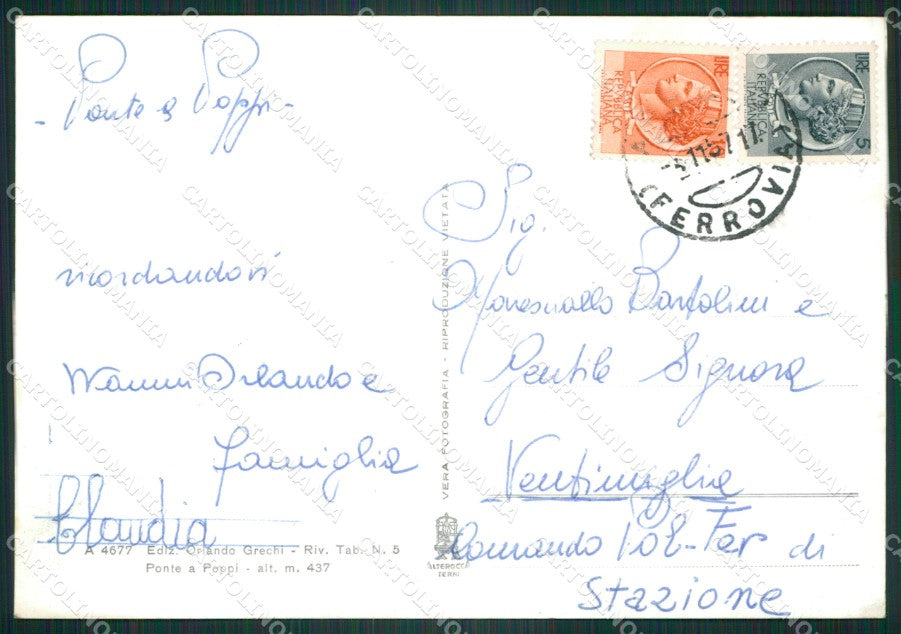 - Ponte a Poppi -
ricordandovi
Nanni Orlando e
famiglia
Claudia
A 4677 Ediz. Orlando Grechi - Riv. Tab. N. 5
Ponte a Poppi - alt. m. 437
VERA FOTOGRAFIA - RIPRODUZIONE VIETATA
ALTEROCCA
TERNI
LIRE
REPVBBLICA
ITALIANA
LIRE
REPVBBLICA
ITALIANA
5
(FERROVIA)
Sig.
Maresciallo Bartolini e
Gentile Signora
Ventimiglia
Comando Pol-Fer di
Stazione
CARTOLINOMANIA